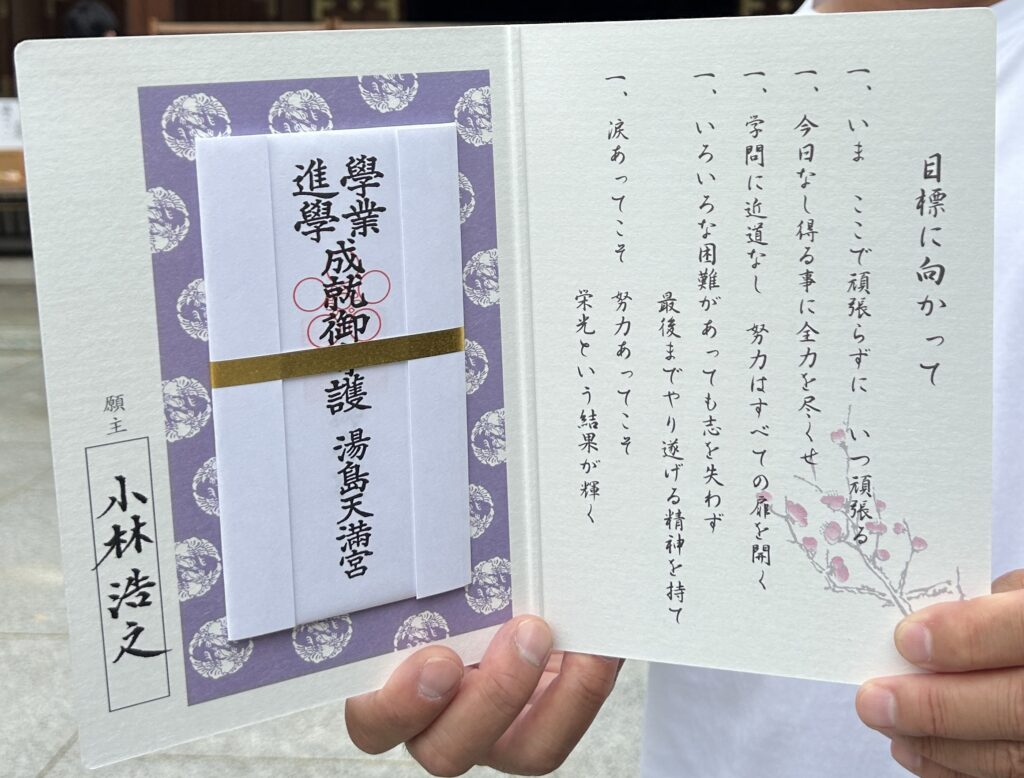 目標に向かって
一、いま ここで頑張らずに いつ頑張る
一、今日なし得る事に全力を尽くせ
一、学問に近道なし 努力はすべての扉を開く
一、いろいろな困難があっても志を失わず
最後までやり遂げる精神を持て
一、涙あってこそ 努力あってこそ
栄光という結果が輝く
學業
進學
成就御守護
湯島天満宮
願主
小林浩之